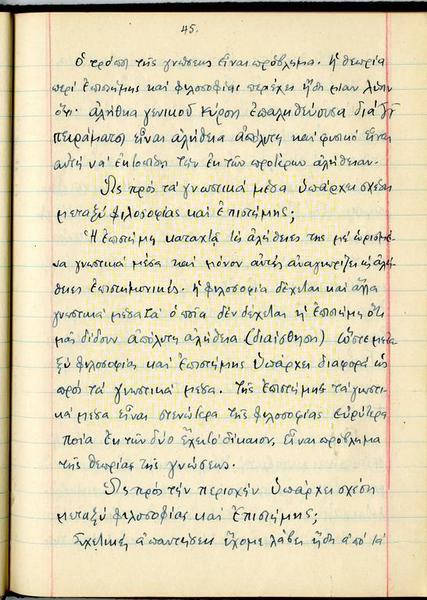 45.
Ὁ τρόπος τῆς γνώσεως εἶναι πρόβλημα. Ἡ θεωρία
περί Ἐπιστήμης καί φιλοσοφίας παρέχει ἤδη μίαν λύσιν
ὅτι ἀλήθεια γενικοῦ κύρους ἐπαληθεύουσα διά τοῦ
πειράματος εἶναι ἀλήθεια ἀπόλυτη καί φυσικό εἶναι
αὐτή νά ἐκτοπίση τήν ἐκ τῶν προτέρων ἀλήθειαν.
Ὡς πρός τά γνωστικά μέσα ὑπάρχει σχέσις
μεταξύ φιλοσοφίας καί ἐπιστήμης;
Ἡ ἐπιστήμη τίς ἀλήθειες της μέ ὡρισμέ-
να γνωστικά μέσα καί μόνον αὐτές ἀναγνωρίζει ὡς ἀλή-
θειες ἐπιστημονικές. Ἡ φιλοσοφία δέχεται καί ἄλλα
γνωστικά μέσα τά ὁποῖα δέν δέχεται ἡ Ἐπιστήμη ὅτι
μᾶς δίδουν ἀπόλυτη ἀλήθεια (διαίσθηση) ὥστε μετα-
ξύ φιλοσοφίας καί Ἐπιστήμης ὑπάρχει διαφορά ὡς
πρός τά γνωστικά μέσα. Τῆς Ἐπιστήμης τά γνωστι-
κά μέσα εἶναι στενώτερα τῆς φιλοσοφίας εὐρύτερα
ποία ἐκ τῶν δύο ἔχει τό δίκαιον, εἶναι πρόβλημα
τῆς θεωρίας τῆς γνώσεως.
Ὡς πρός τήν περιοχήν ὑπάρχει σχέση
μεταξύ φιλοσοφίας καί Ἐπιστήμης;
Σχετικές ἀπαντήσεις ἔχομε λάβει ἤδη ἀπό τά